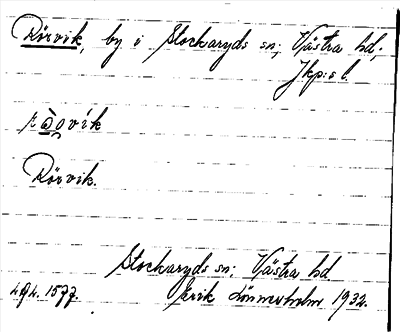 Rörvik, by i Stockaryds sn; Västra hd;
Jkp:s l.
Rörvik.
Stockaryds sn; Västra hd
Erik Lönnerholm 1932.